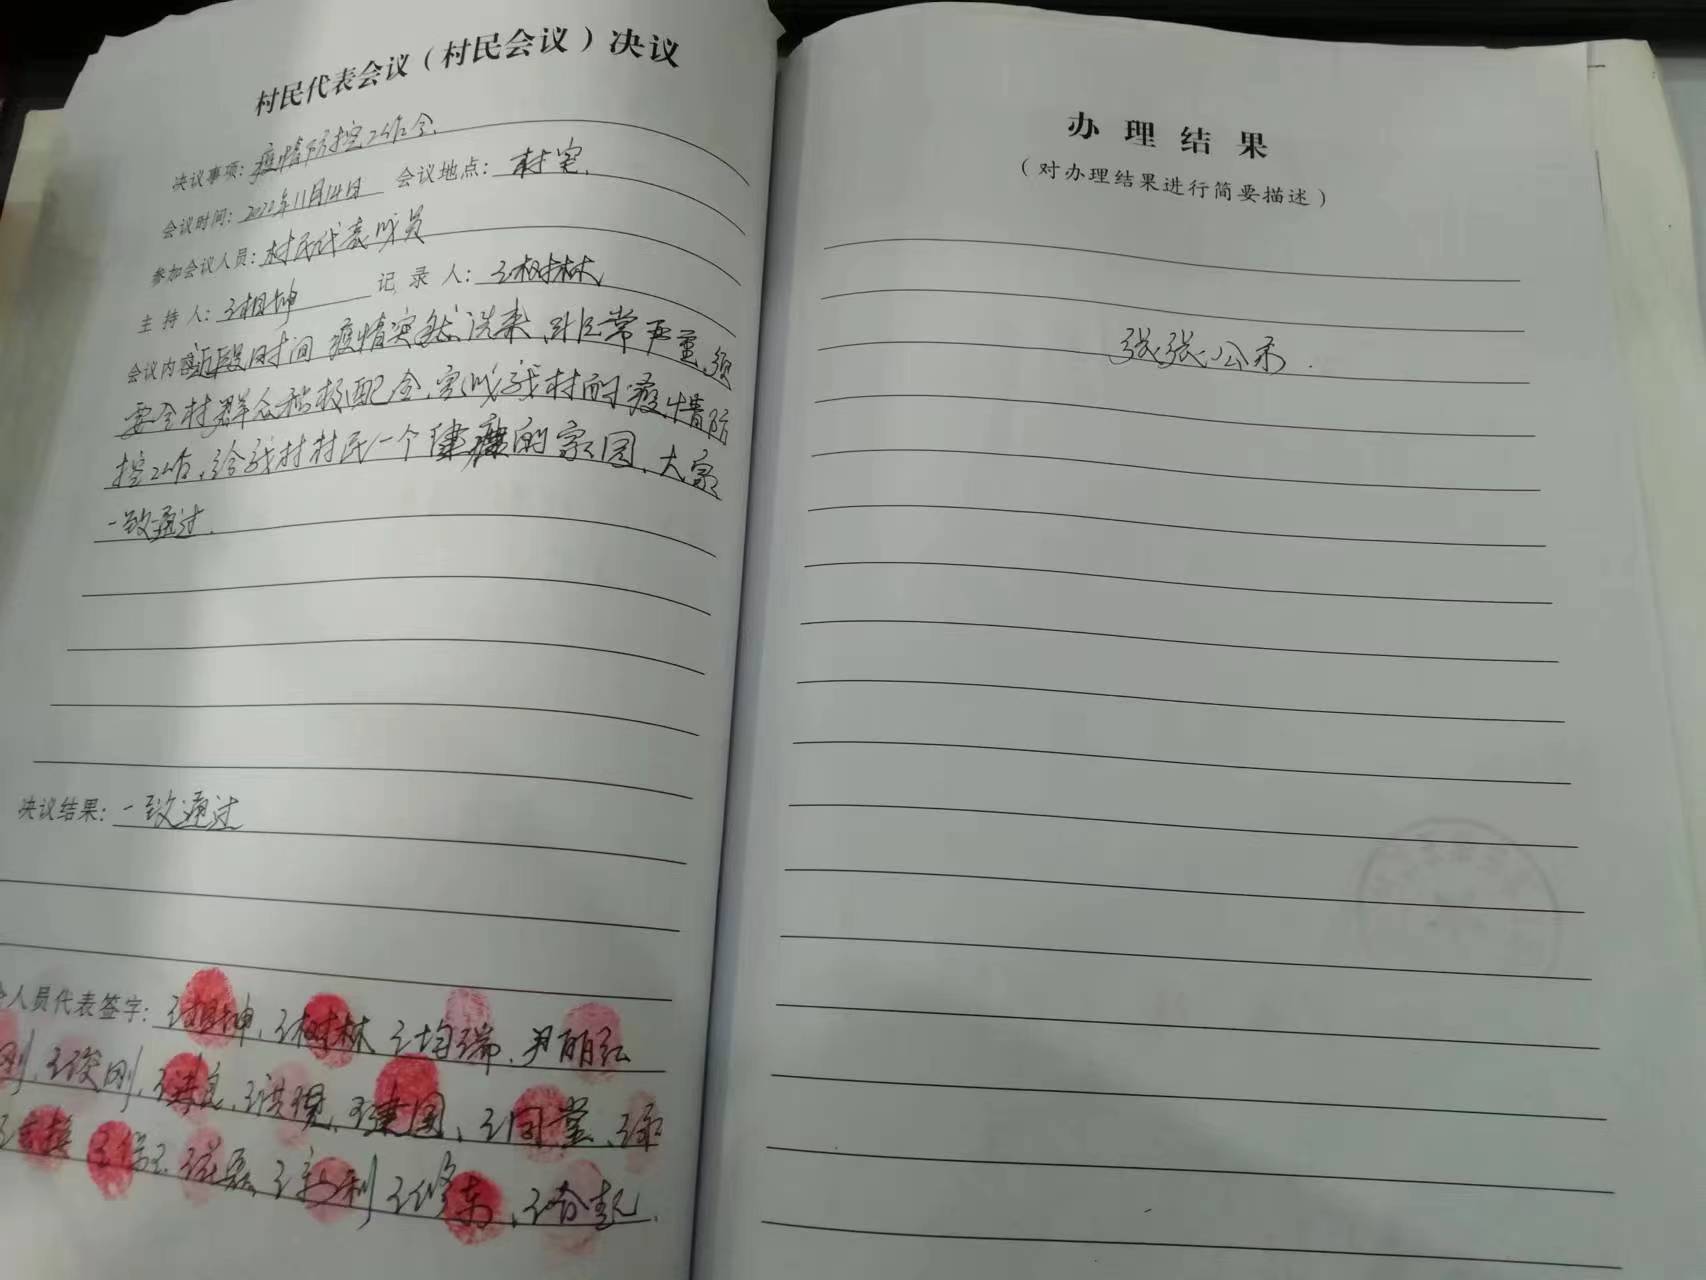 村民代表会议（村民会议）决议
决议事项：疫情防控工作会.
会议时间：2022年11月14日 会议地点：村室.
参加会议人员：村民代表成员
主持人：王相坤 记录人：王树林
会议内容：近段时间疫情突然袭来,非常严重,须
要全村群众积极配合,完成我村的疫情防
控工作,给我村村民一个健康的家园,大家
一致通过.
决议结果：一致通过
人员代表签字：王相坤、王树林 王均瑞、尹丽红
刚、王俊刚、王建国、王同堂、
王利 王修东、
办理结果
（对办理结果进行简要描述）
张张公示.